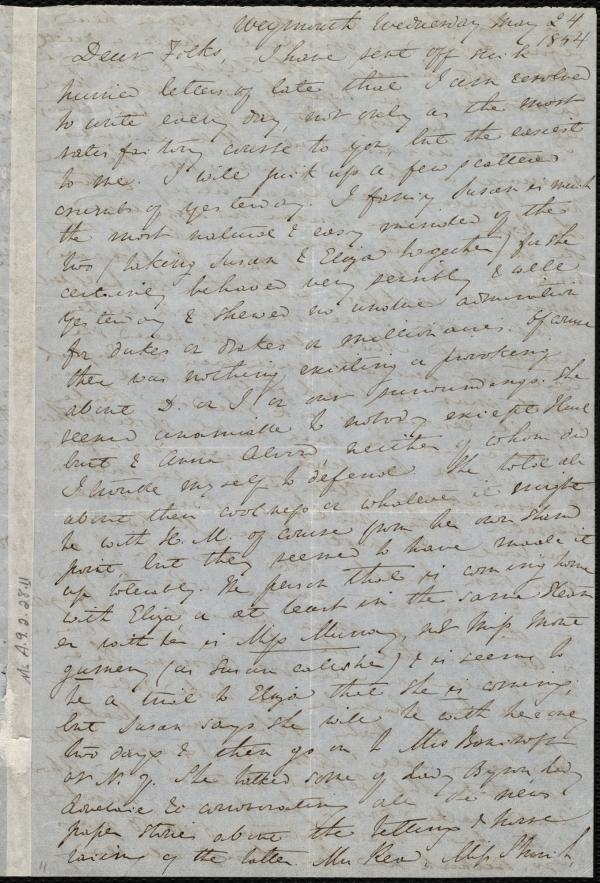 Weymouth Wednesday May 24
1854
Dear Folks, I have sent off such
hurried letters of late that I am resolved
to write every day, not only as the most
satisfactory course to you, but the easiest
to me. I will pick up a few scattered
crumbs of yesterday. I fancy Susan is much
the most natural & easy minded of the
two (taking Susan & Eliza together) for she
certainly behaved very sensibly & well
yesterday & shewed no undue admiration
for dukes or drakes or millionaires. Of course
there was nothing exciting or provoking
about D. or I or our surroundings. She
seemed unamiable to nobody except
& Anna Alvord neither of whom did
I trouble myself to defend. She told all
about their coolness or whatever it might
be with H. M. of course from her own stand
point but they seemed to have made it
up tolerably. The person that is coming home
with Eliza or at least in the same steam
er with her is Miss Murray, not Miss Mont
gomery (as Susan calls her) & it seems to
be a trial to Eliza that she is coming;
but Susan says she will be with her only
two days & then go on to Mrs Bancroft
at N. Y. She talked some of Lady Byron, Lady
Lovelace &c corroborating all the news
paper stories about the betting & horse
racing of the latter. Mrs Reid, Miss Sturch,
Ms. A.9.2.28.11